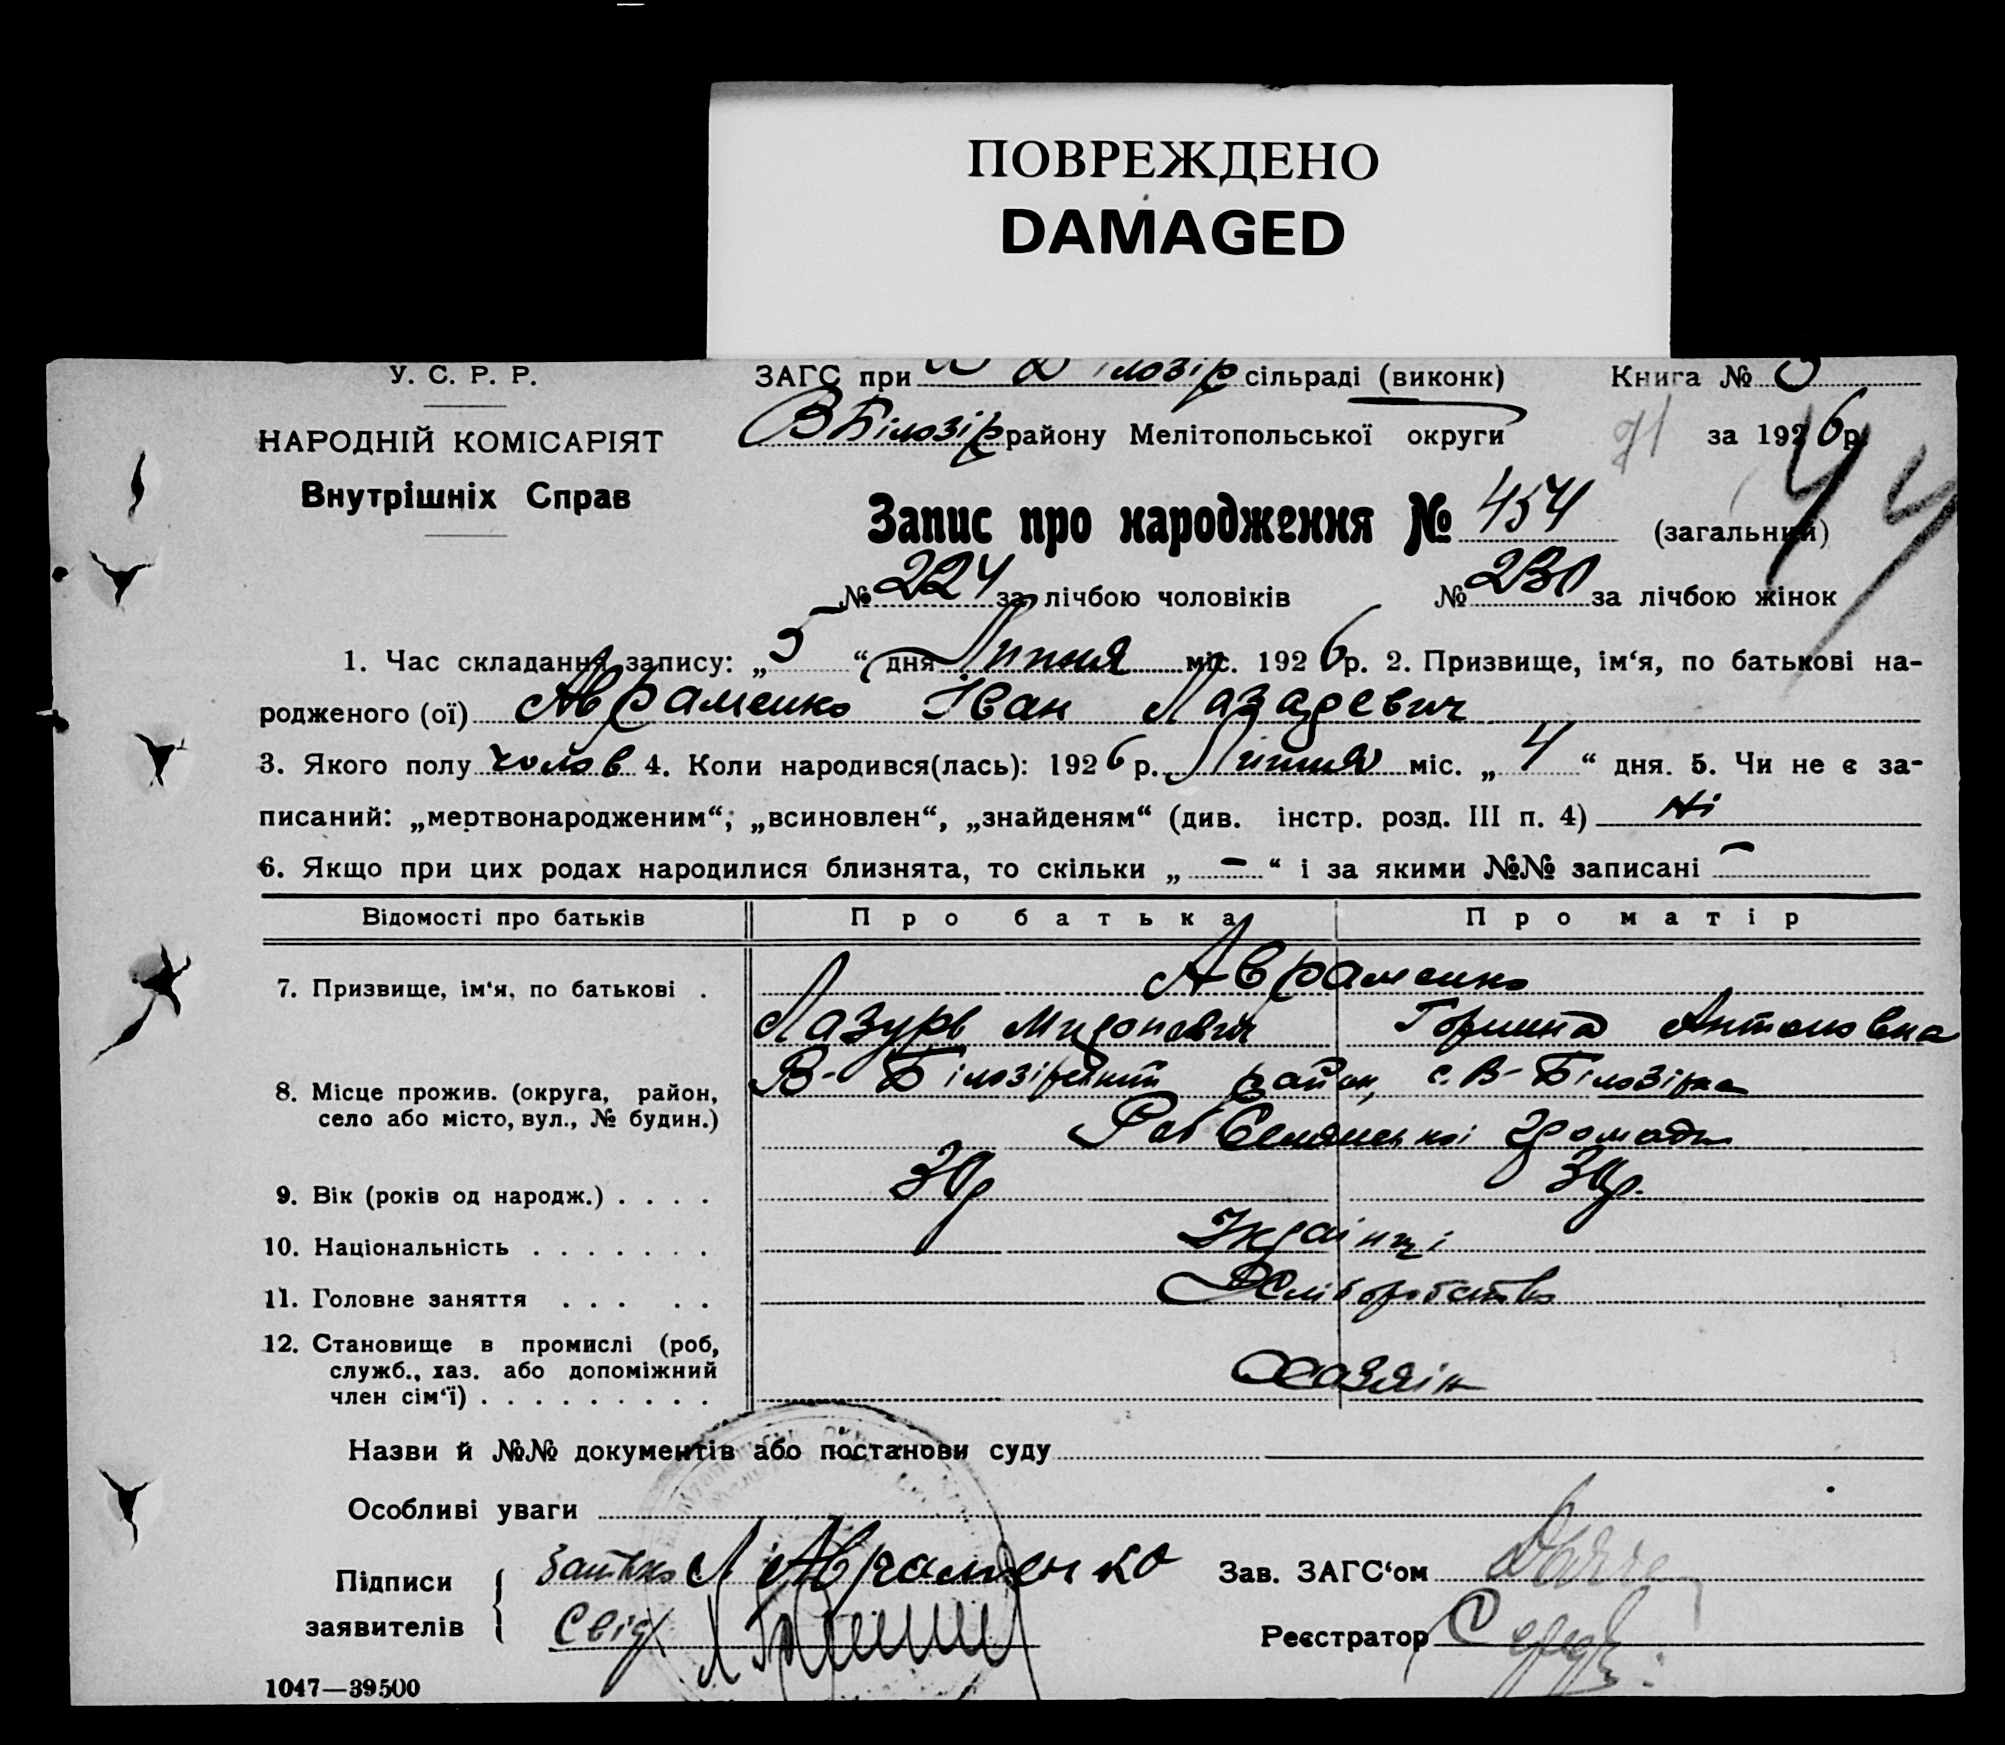 ПОВРЕЖДЕНО
DAMAGED
У. С. Р. Р.
НАРОДНІЙ КОМІСАРІЯТ
Внутрішніх Справ
ЗАГС при Білозір сільраді (виконк) Книга №
ВБілозір району Мелітопольської округи 71 за 1926р.
44
Запис про народження № 454 (загальний)
№ 224 за лічбою чоловіків № 230 за лічбою жінок
1. Час складання запису: „5“ дня Липня міс. 1926р. 2. Призвище, ім‘я, по батькові на-
родженого (ої) Авраменко Іван Лазаревич
3. Якого полу чолов 4. Коли народився(лась): 1926р. Липня міс. „4“ дня. 5. Чи не є за-
писаний: „мертвонародженим“; „всиновлен“, „знайденям“ (див. інстр. розд. III п. 4) ні
6. Якщо при цих родах народилися близнята, то скільки „ — “ і за якими №№ записані —
Відомості про батьків Про батька Про матір
7. Призвище, ім‘я, по батькові . Авраменко
Лазурь Антоновна
8. Місце прожив. (округа, район, В-Білозірський район, с. В-Білозірка
село або місто, вул., № будин.) громади
9. Вік (років од народж.) . . . . 30р 30р.
10. Національність . . . . . . . Українці
11. Головне заняття . . . . . Хліборобство
12. Становище в промислі (роб,
служб., хаз. або допоміжний Хазяїн
член сім‘ї) . . . . . . . . .
Назви й №№ документів або постанови суду
Особливі уваги
Підписи Л Авраменко Зав. ЗАГС‘ом
заявителів Свід Реєстратор
1047—39500